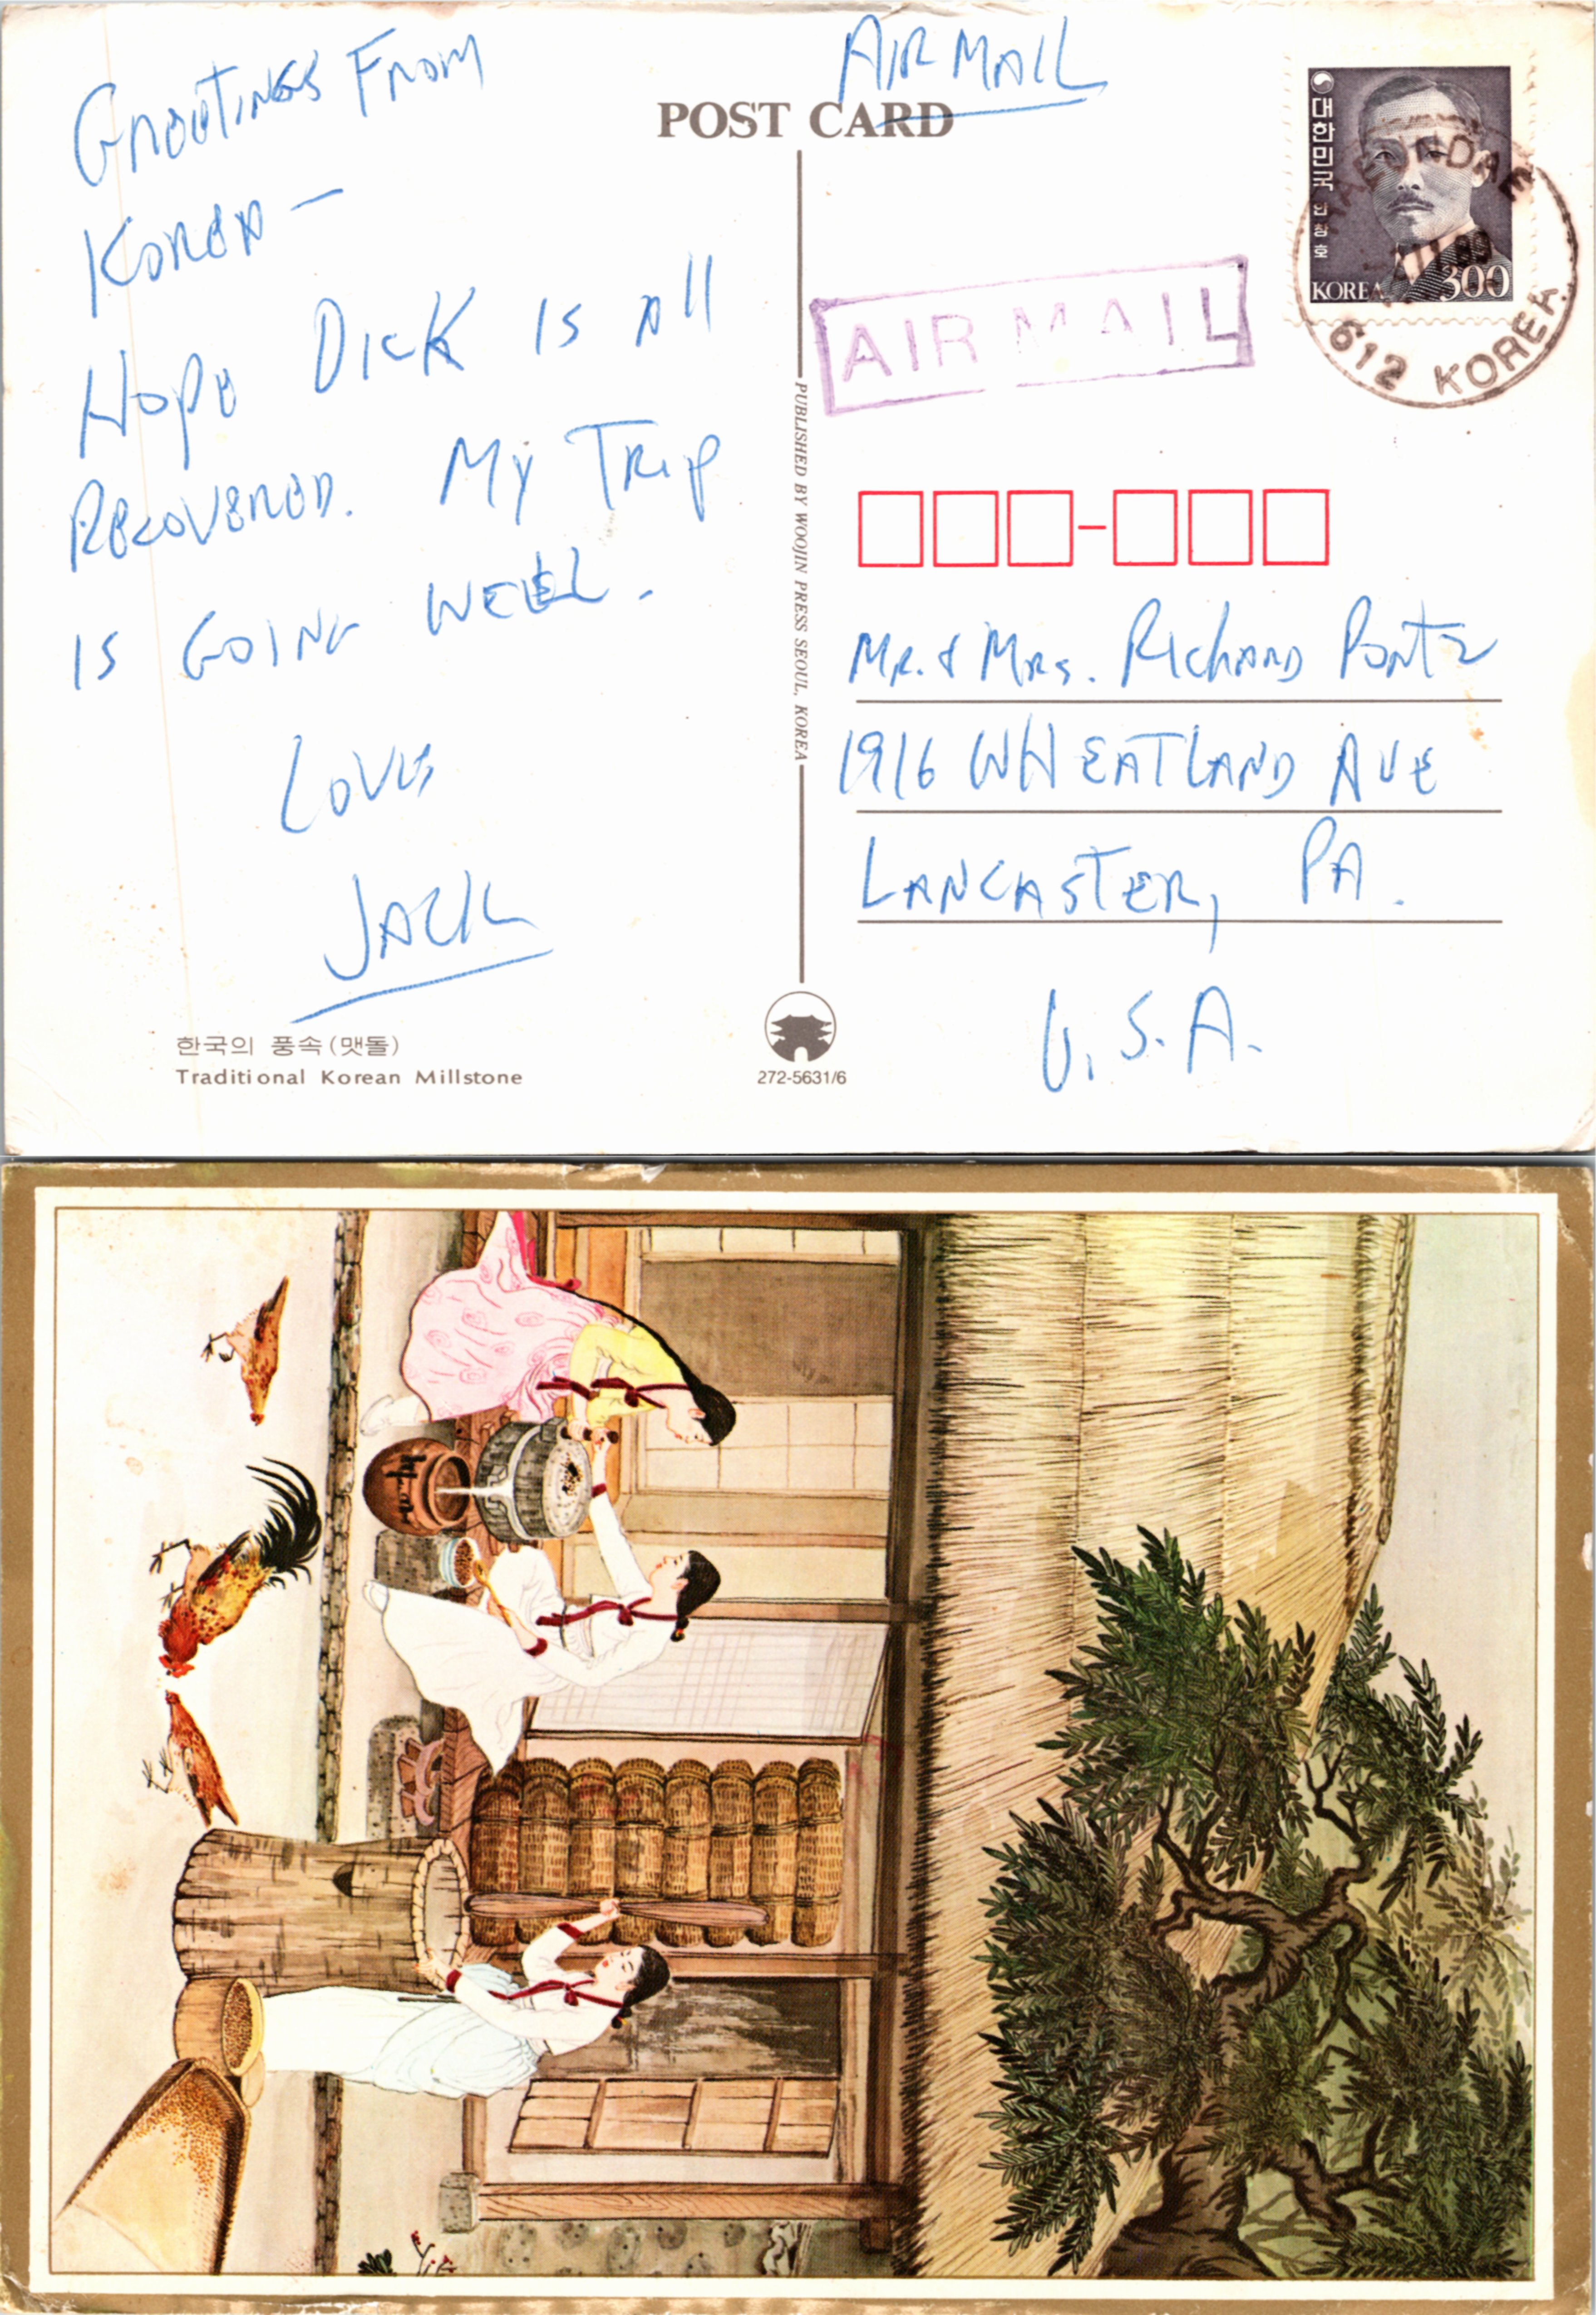 Greetings From
Korea —
Hope Dick is all
Recovered. My Trip
is Going Well.
Love
Jack
한국의 풍속(맷돌)
Traditional Korean Millstone
AIR MAIL
POST CARD
대한민국
안창호
KOREA 300
612 KOREA
AIR MAIL
PUBLISHED BY WOOJIN PRESS SEOUL, KOREA
Mr. & Mrs. Richard Pontz
1916 WHEATLAND AVE
LANCASTER, PA.
U.S.A.
272-5631/6